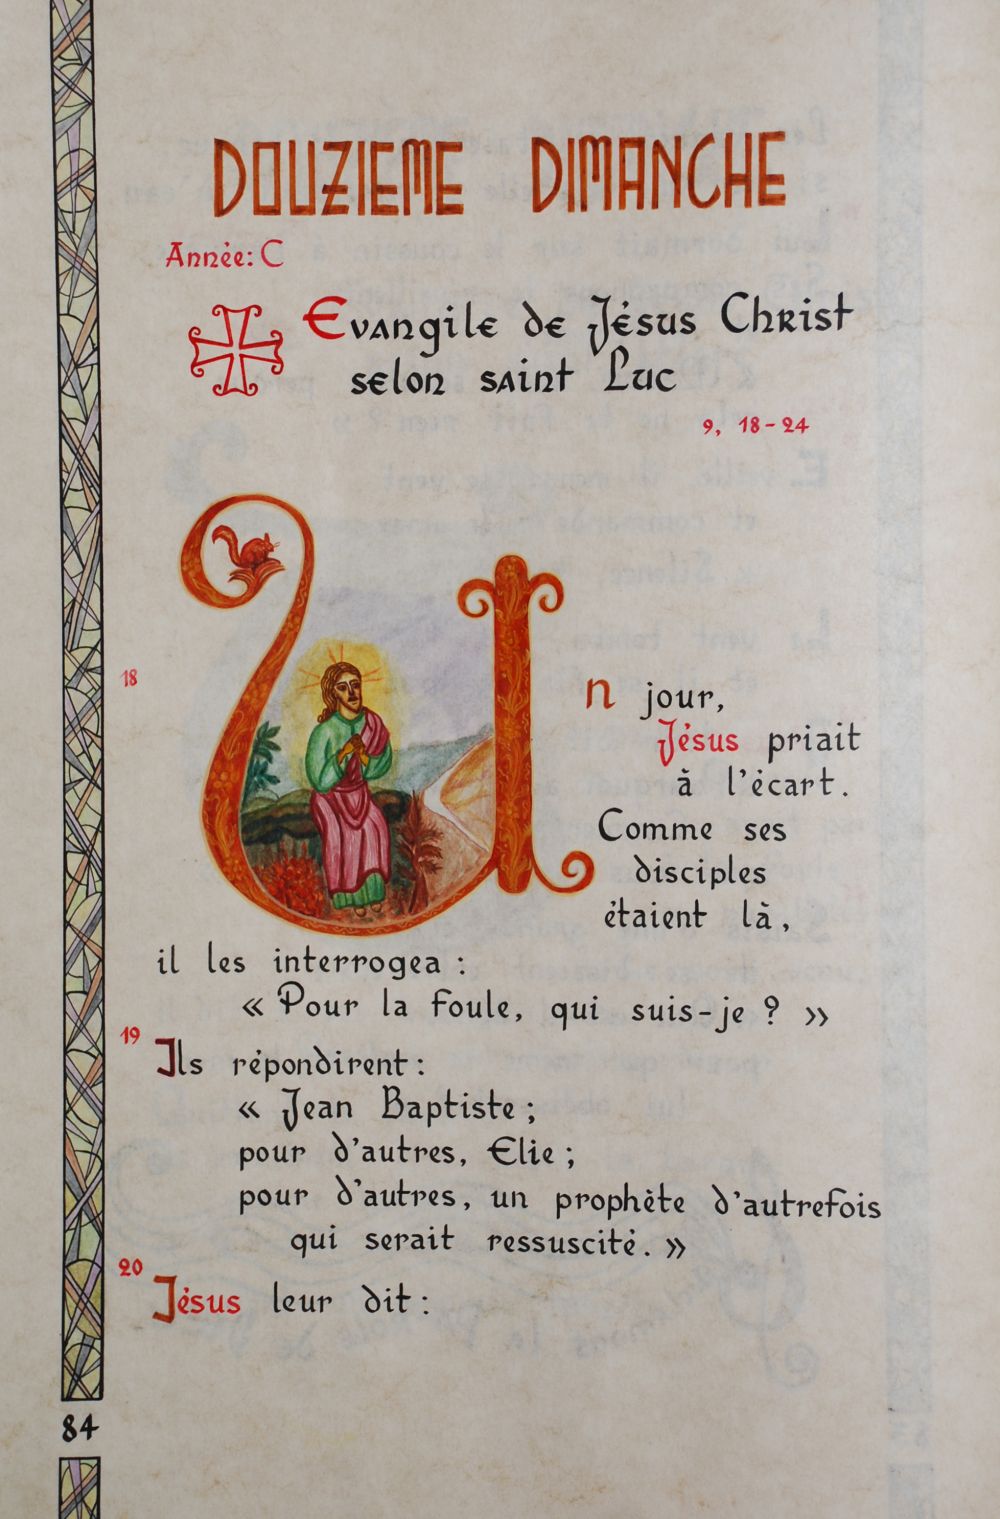 DOUZIEME DIMANCHE
Année: C
Evangile de Jésus Christ
selon saint Luc
9, 18-24
18
Un jour,
Jésus priait
à l'écart.
Comme ses
disciples
étaient là,
il les interrogea :
« Pour la foule, qui suis-je ? »
19
Ils répondirent :
« Jean Baptiste ;
pour d'autres, Elie ;
pour d'autres, un prophète d'autrefois
qui serait ressuscité. »
20
Jésus leur dit :
84